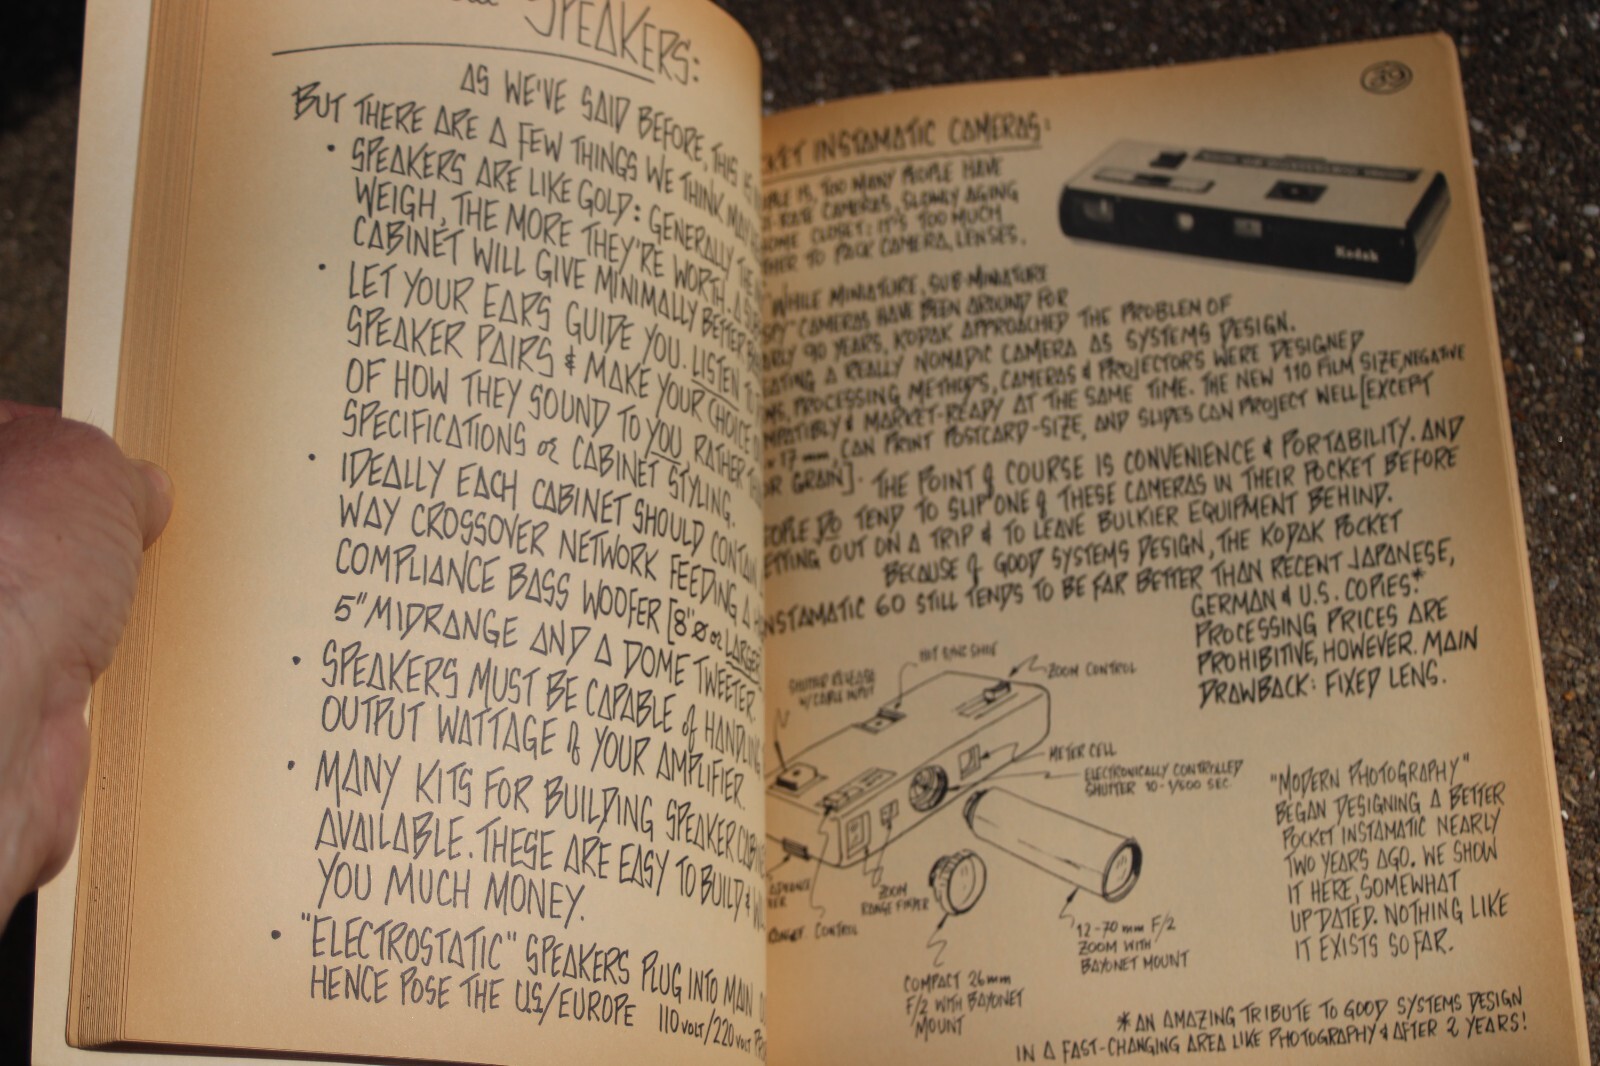 SPEAKERS:
AS WE'VE SAID BEFORE, THIS IS
BUT THERE ARE A FEW THINGS WE THINK
• SPEAKERS ARE LIKE GOLD: GENERALLY THE
WEIGH, THE MORE THEY'RE WORTH. A
CABINET WILL GIVE MINIMALLY BETTER
• LET YOUR EARS GUIDE YOU. LISTEN TO
SPEAKER PAIRS & MAKE YOUR CHOICE
OF HOW THEY SOUND TO YOU RATHER
SPECIFICATIONS OR CABINET STYLING.
• IDEALLY EACH CABINET SHOULD CONTAIN
WAY CROSSOVER NETWORK FEEDING A
COMPLIANCE BASS WOOFER [8"Ø OR LARGER
5" MIDRANGE AND A DOME TWEETER.
• SPEAKERS MUST BE CAPABLE of HANDLING
OUTPUT WATTAGE of YOUR AMPLIFIER.
• MANY KITS FOR BUILDING SPEAKER
AVAILABLE. THESE ARE EASY TO BUILD &
YOU MUCH MONEY.
• "ELECTROSTATIC" SPEAKERS PLUG INTO MAIN
HENCE POSE THE US/EUROPE 110 VOLT/220 VOLT
39
INSTAMATIC CAMERAS:
IS, TOO MANY PEOPLE HAVE
RATE CAMERAS, SLOWLY AGING
CLOSET: IT'S TOO MUCH
TO PACK CAMERA, LENSES.
Kodak
WHILE MINIATURE, SUB-MINIATURE
"SPY" CAMERAS HAVE BEEN AROUND FOR
90 YEARS, KODAK APPROACHED THE PROBLEM OF
A REALLY NOMADIC CAMERA AS SYSTEMS DESIGN.
PROCESSING METHODS, CAMERAS & PROJECTORS WERE DESIGNED
& MARKET-READY AT THE SAME TIME. THE NEW 110 FILM SIZE, NEGATIVE
17 mm, CAN PRINT POSTCARD-SIZE, AND SLIDES CAN PROJECT WELL [EXCEPT
GRAIN]. THE POINT of COURSE IS CONVENIENCE & PORTABILITY. AND
PEOPLE DO TEND TO SLIP ONE of THESE CAMERAS IN THEIR POCKET BEFORE
OUT ON A TRIP & TO LEAVE BULKIER EQUIPMENT BEHIND.
BECAUSE of GOOD SYSTEMS DESIGN, THE KODAK POCKET
INSTAMATIC 60 STILL TENDS TO BE FAR BETTER THAN RECENT JAPANESE,
GERMAN & U.S. COPIES.*
PROCESSING PRICES ARE
PROHIBITIVE, HOWEVER. MAIN
DRAWBACK: FIXED LENS.
SHUTTER RELEASE
W/CABLE INPUT
HOT SYNC SHOE
ZOOM CONTROL
METER CELL
ELECTRONICALLY CONTROLLED
SHUTTER 10-1/500 SEC.
ZOOM
RANGE FINDER
CONTROL
COMPACT 26mm
F/2 WITH BAYONET
MOUNT
12-70 mm F/2
ZOOM WITH
BAYONET MOUNT
"MODERN PHOTOGRAPHY"
BEGAN DESIGNING A BETTER
POCKET INSTAMATIC NEARLY
TWO YEARS AGO. WE SHOW
IT HERE, SOMEWHAT
UPDATED. NOTHING LIKE
IT EXISTS SO FAR.
* AN AMAZING TRIBUTE TO GOOD SYSTEMS DESIGN
IN A FAST-CHANGING AREA LIKE PHOTOGRAPHY & AFTER 2 YEARS!